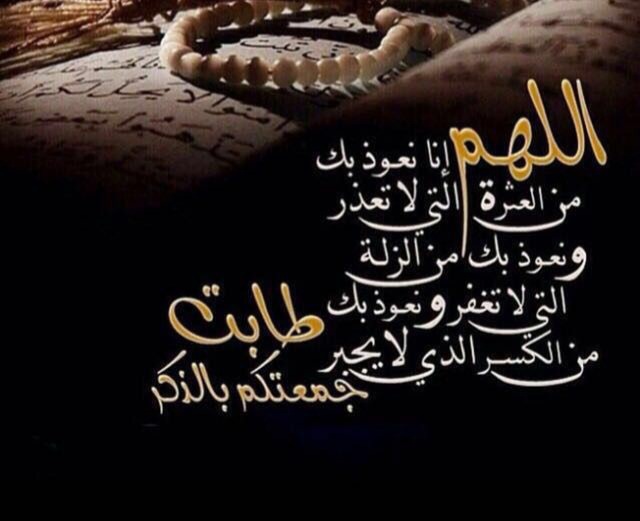 اللهم إنا نعوذ بك
من العثرة التي لا تعذر
ونعوذ بك من الزلة
التي لا تغفر ونعوذ بك
من الكسر الذي لا يجبر
طابت
جمعتكم بالذكر